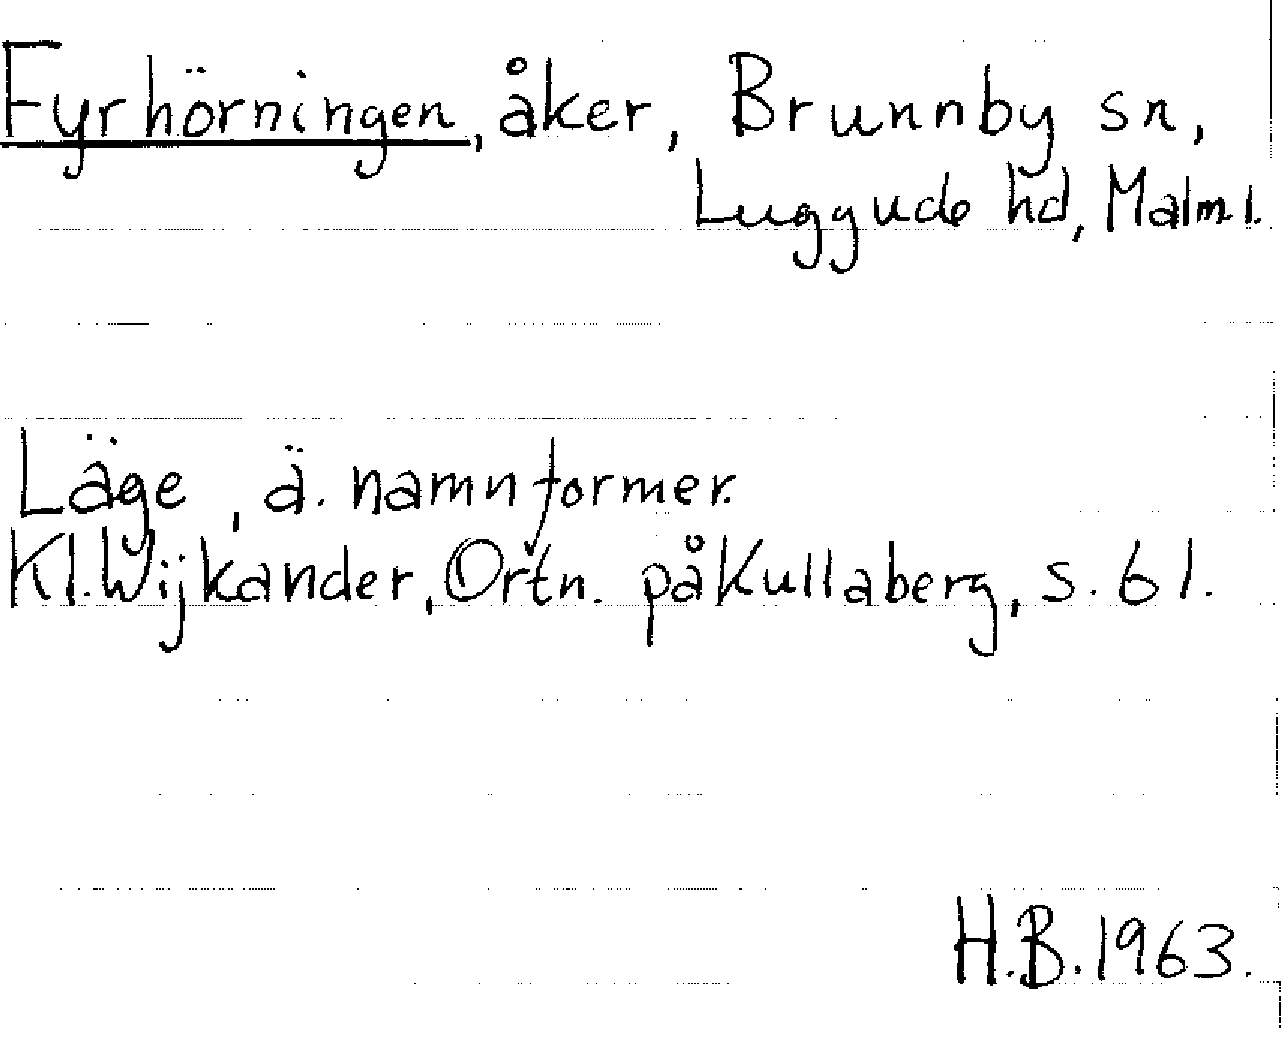 Fyrhörningen, åker, Brunnby sn,
Luggude hd, Malm l.
Läge, ä. namnformer.
Kl. Wijkander, Ortn. på Kullaberg, s. 61.
H.B. 1963.